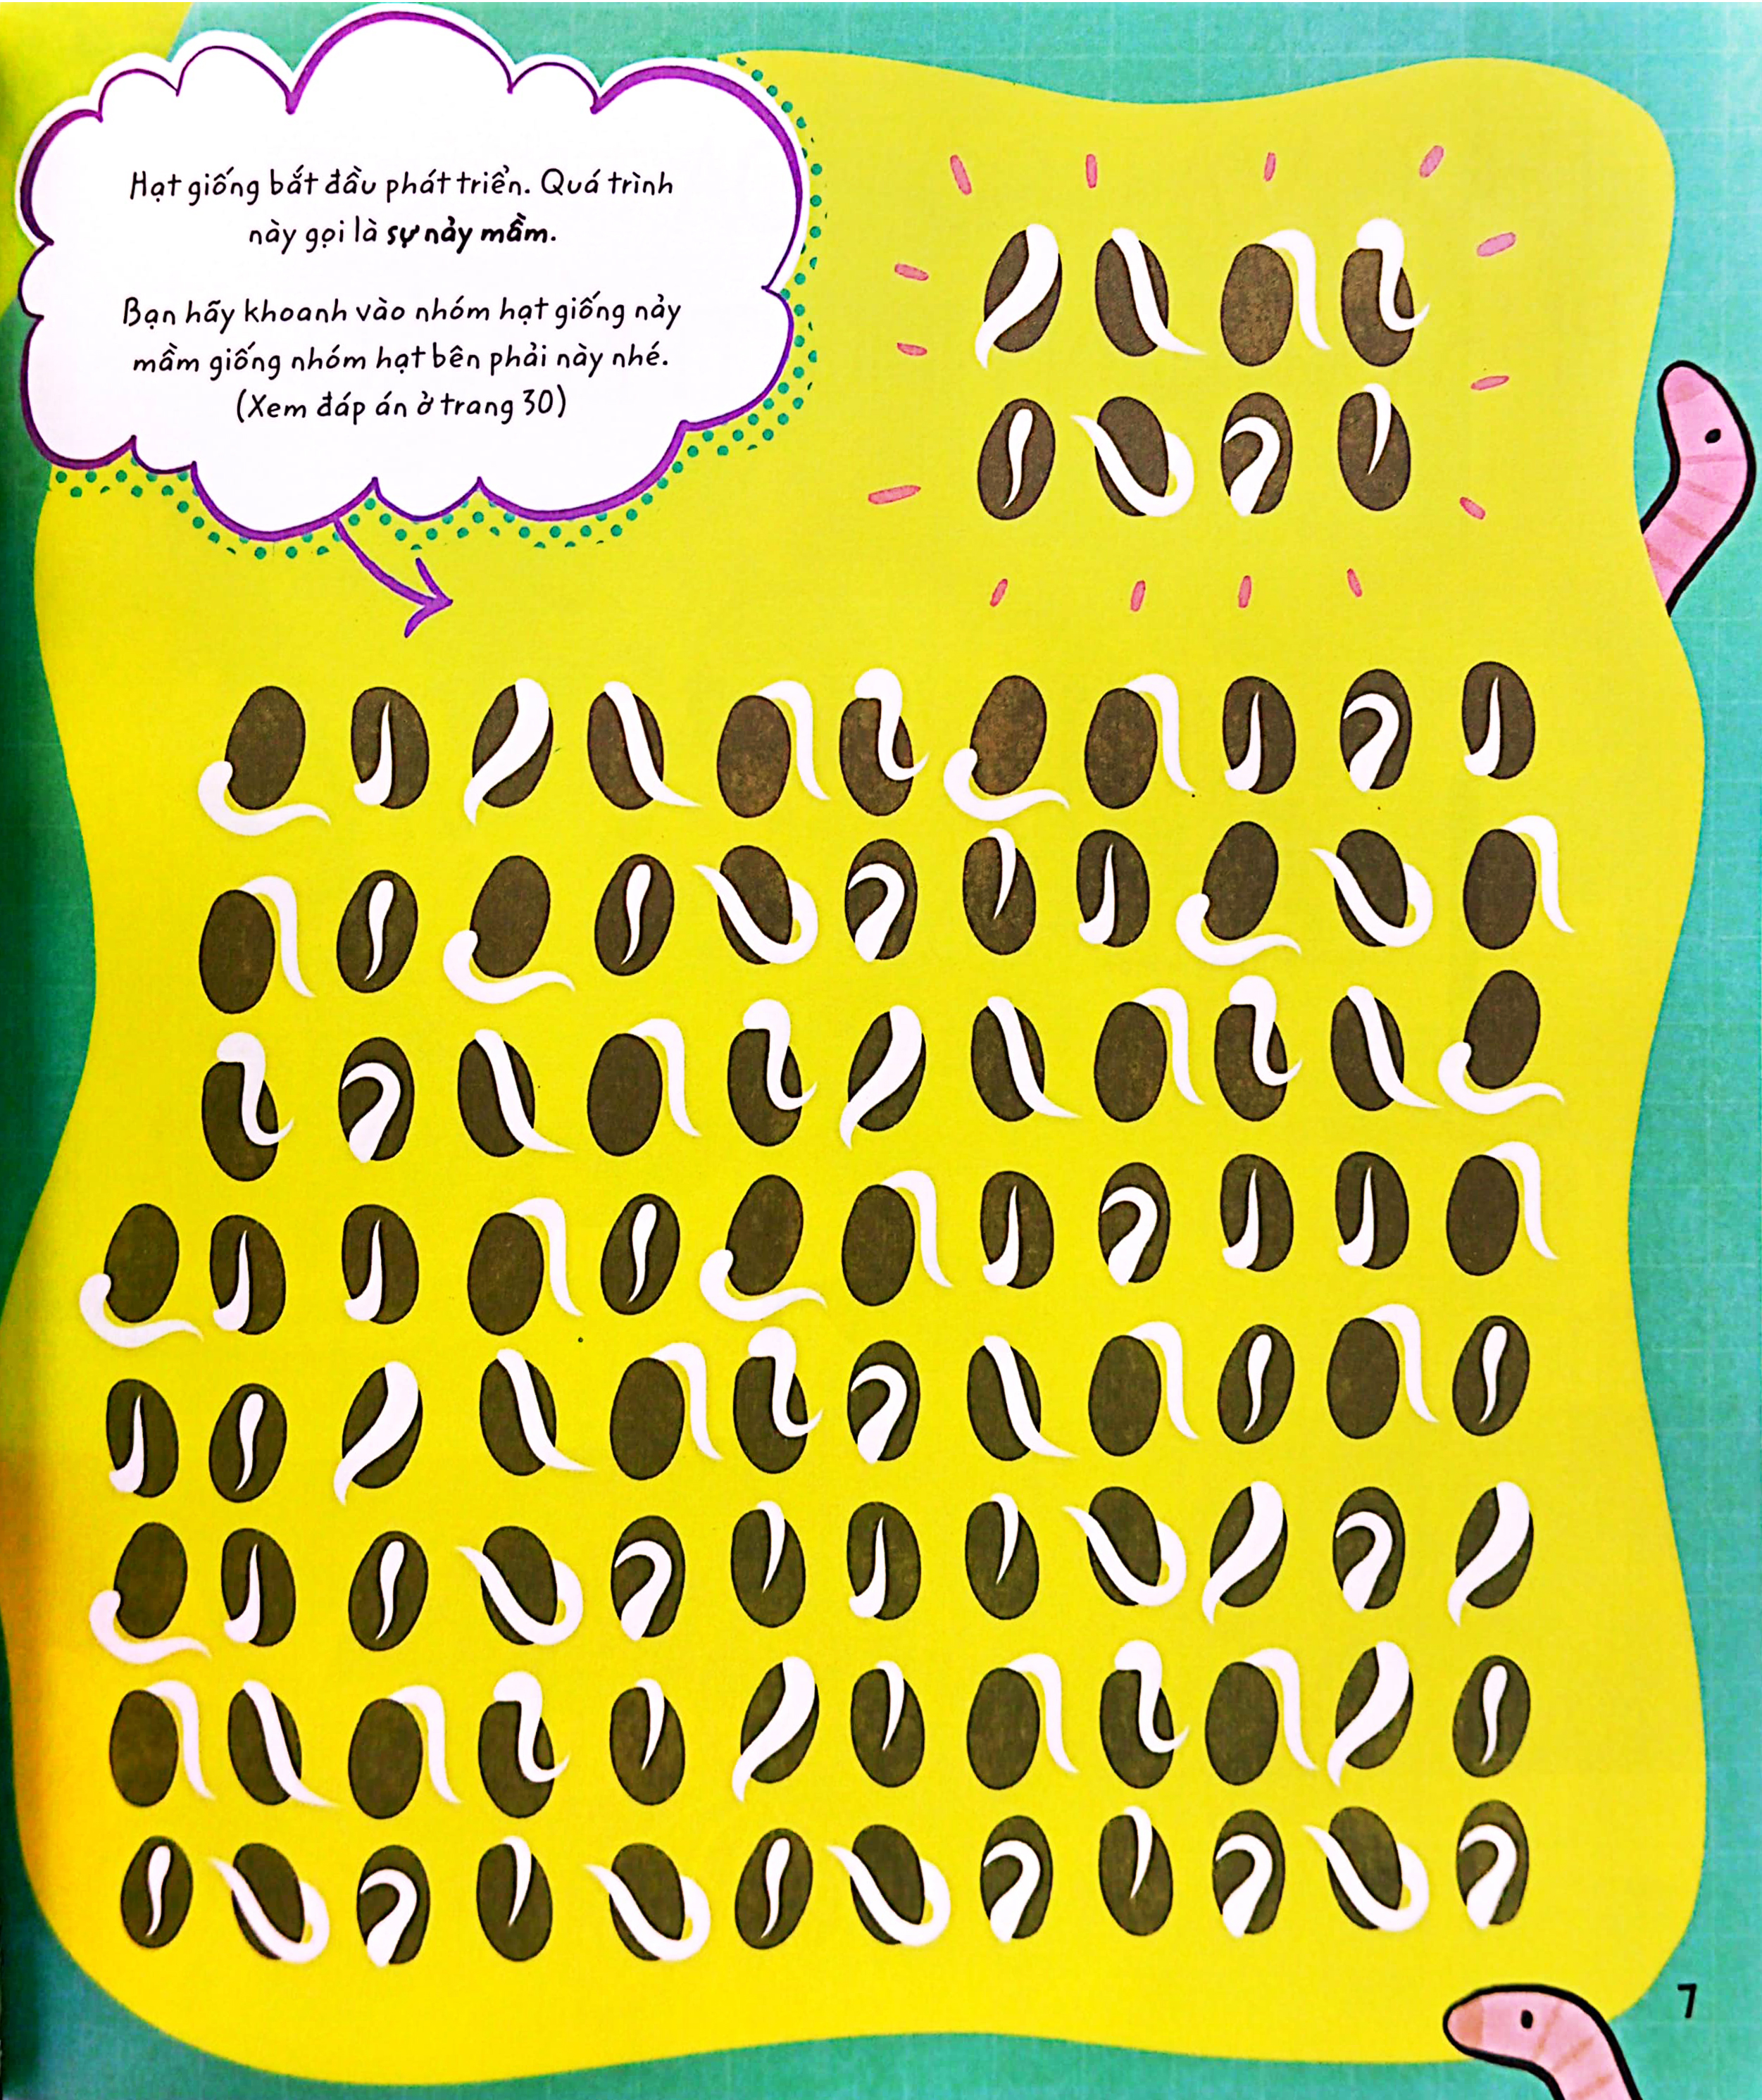 Hạt giống bắt đầu phát triển. Quá trình
này gọi là sự nảy mầm.
Bạn hãy khoanh vào nhóm hạt giống nảy
mầm giống nhóm hạt bên phải này nhé.
(Xem đáp án ở trang 30)
7